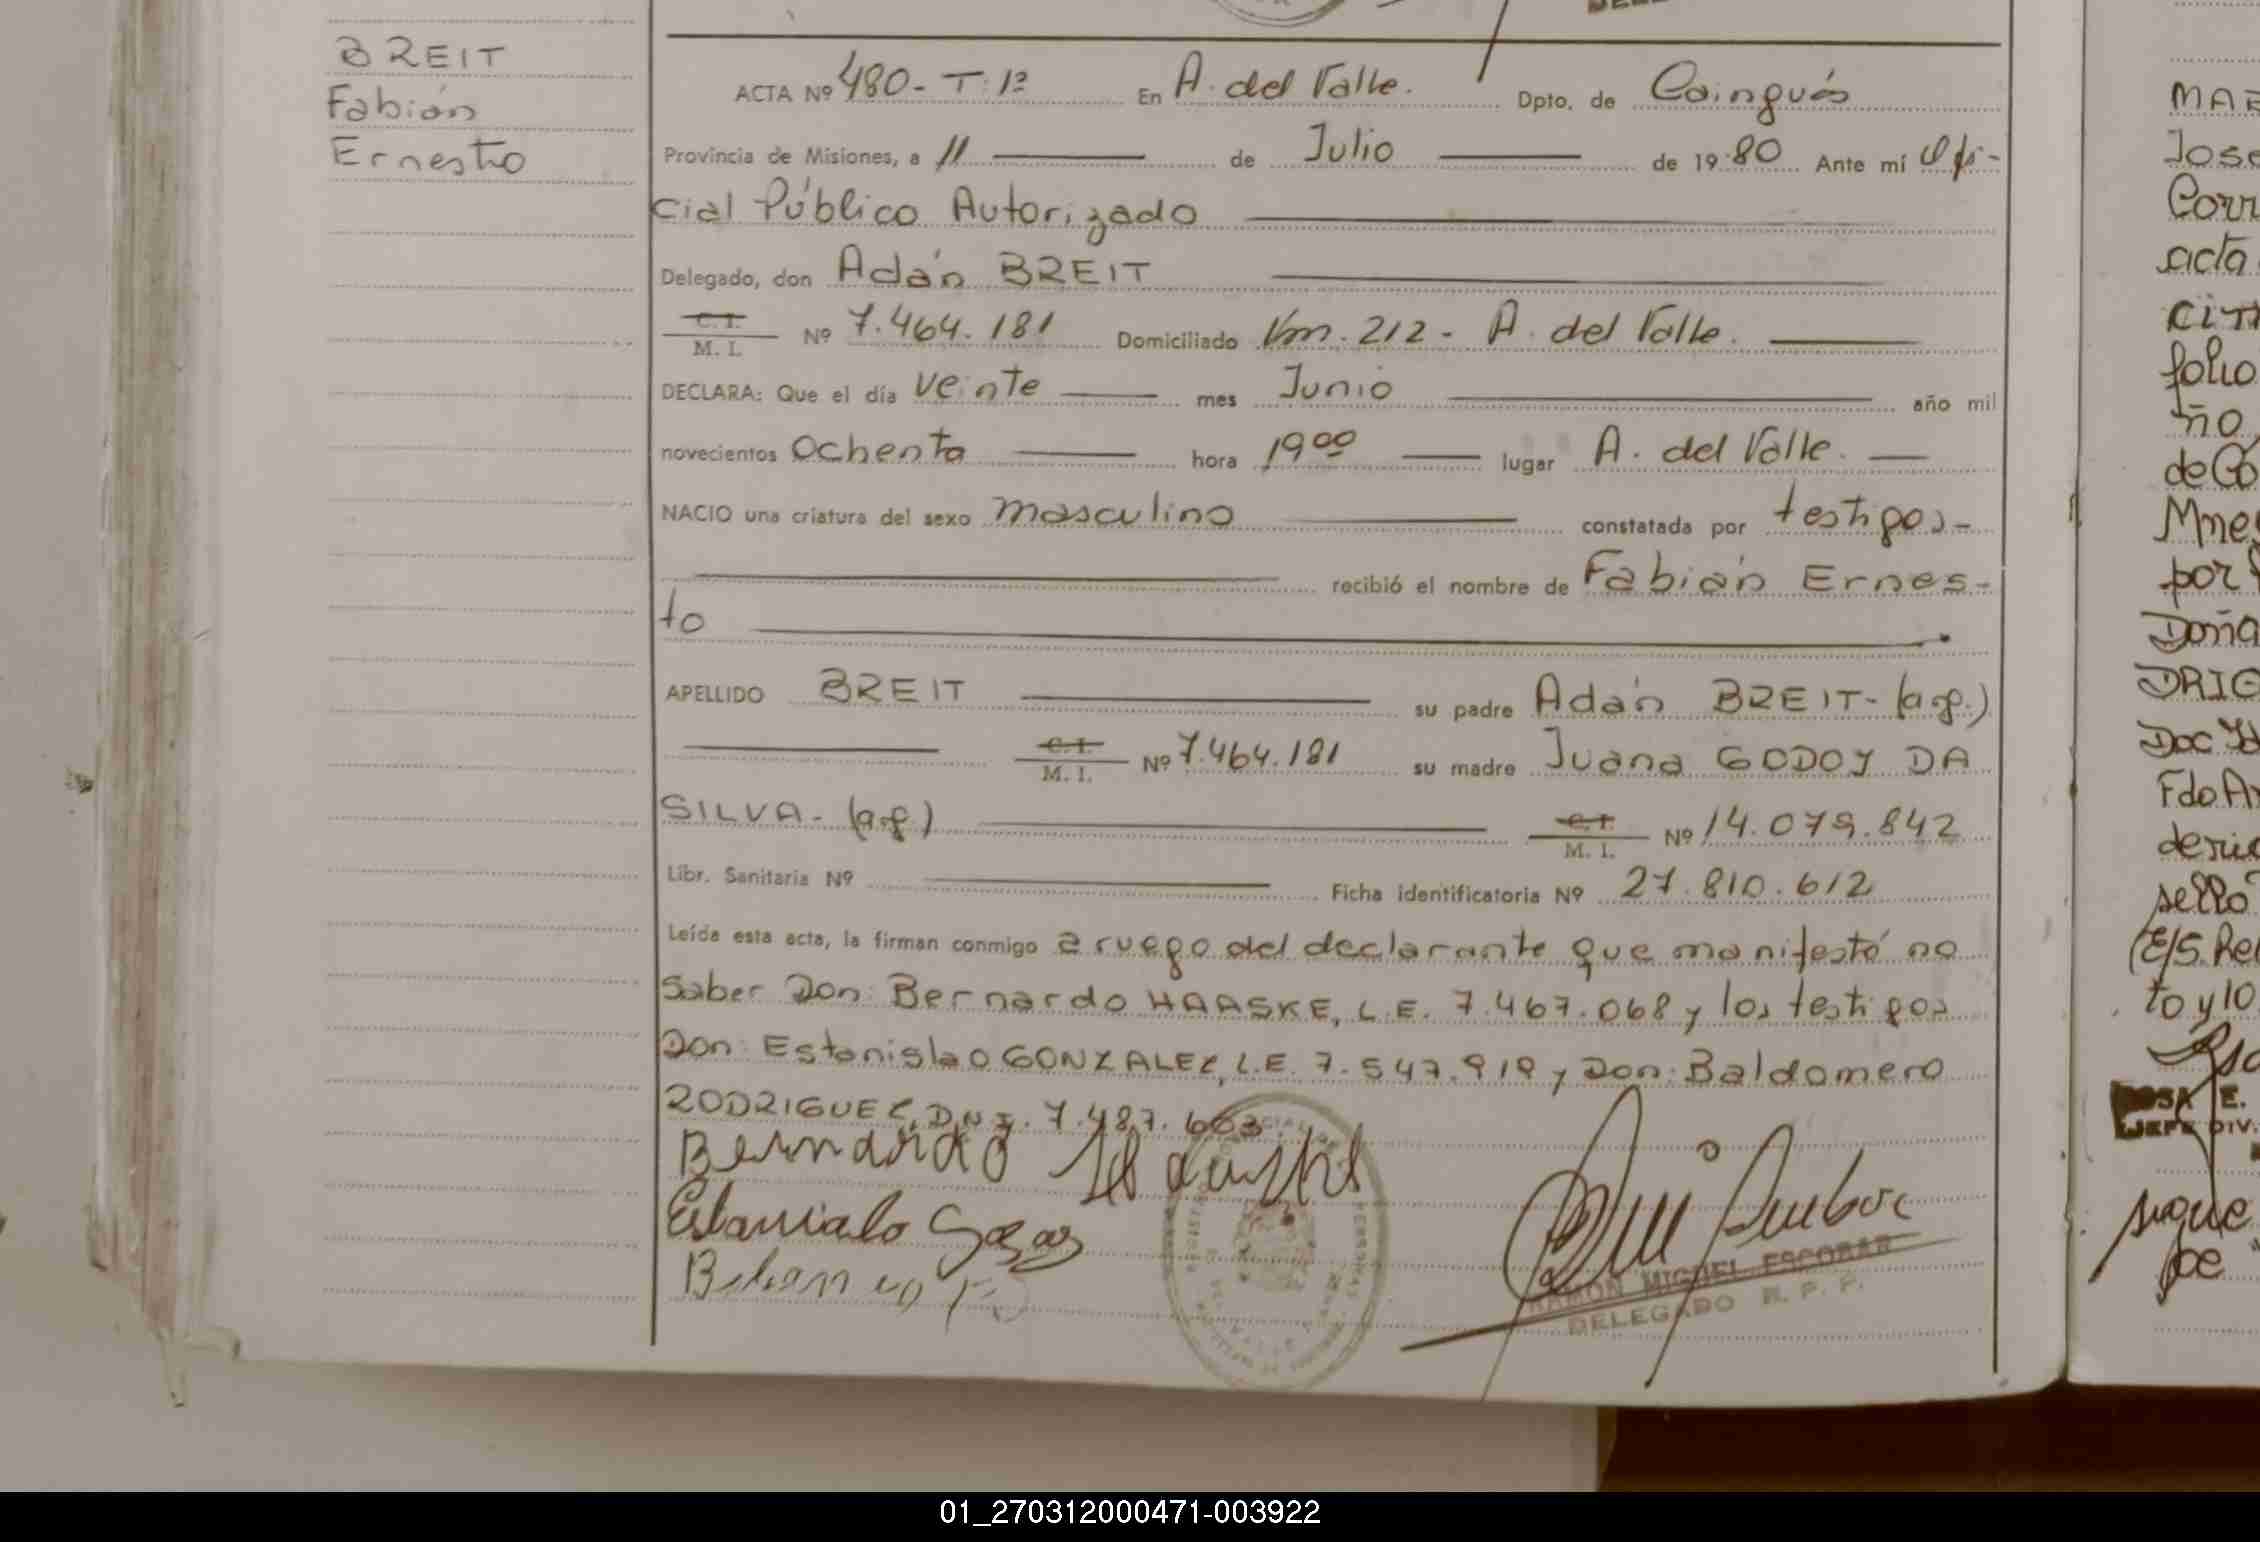 BREIT
Fabián
Ernesto
ACTA Nº 480 - T: 1º En A. del Valle. Dpto. de Cainguás
Provincia de Misiones, a 11 de Julio de 1980 Ante mí Ofi-
cial Público Autorizado
Delegado, don Adán BREIT
C. I.
M. I. Nº 7.464.181 Domiciliado Km. 212 - A. del Valle.
DECLARA: Que el día veinte mes Junio año mil
novecientos ochenta hora 19 00 lugar A. del Valle.
NACIO una criatura del sexo masculino constatada por testigos -
recibió el nombre de Fabián Ernes-
to
APELLIDO BREIT su padre Adán BREIT - (arg.)
C. I.
M. I. Nº 7.464.181 su madre Juana GODOY DA
SILVA - (arg) C. I.
M. I. Nº 14.079.842
Libr. Sanitaria Nº Ficha identificatoria Nº 27.810.612
Leída esta acta, la firman conmigo a ruego del declarante que manifestó no
saber Don: Bernardo HAASKE, L.E. 7.467.068 y los testigos
Don: Estanislao GONZALEZ, L.E. 7.547.919 y Don: Baldomero
RODRIGUEZ, D.N.I. 7.487.663.
Bernardo
RAMON MIGUEL ESCOBAR
DELEGADO R. P. P.
MAR
José
Corr
acta
CITA
folio
ño
de
por
Doña
DRIG
Doc
Fdo
sello
(E/S. Re
to y lo
ROSA E.
JEFE DIV.
sigue
01_270312000471-003922